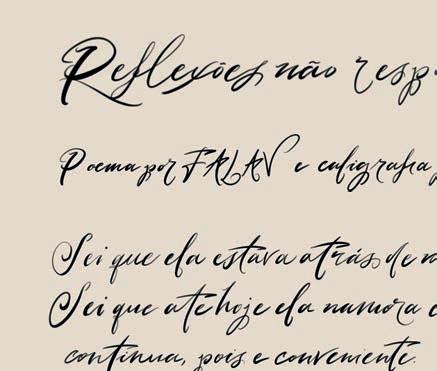 Reflexões não resp
Poema por FALAV e caligrafia
Sei que ela estava atrás de
Sei que até hoje ela namora
contínua, pois e conveniente.